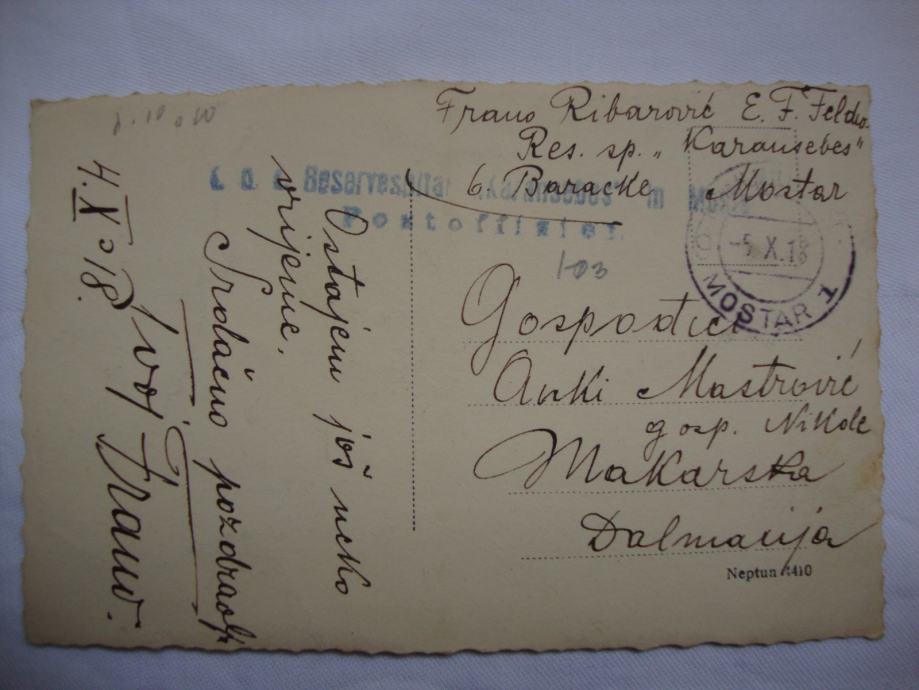 Frano Ribarović E. F. Feldw.
Res. sp. „Karansebes"
6. Baracke Mostar
Reservespital Karansebes in
Postoffizier
103
-5.X.18
MOSTAR 1
Gospođici
Anki Mastrović
gosp. Nikole
Makarska
Dalmacija
Neptun 4410
Ostajem još neko
vrijeme.
Srdačno pozdravlja
Tvoj Frano.
4.X 918.